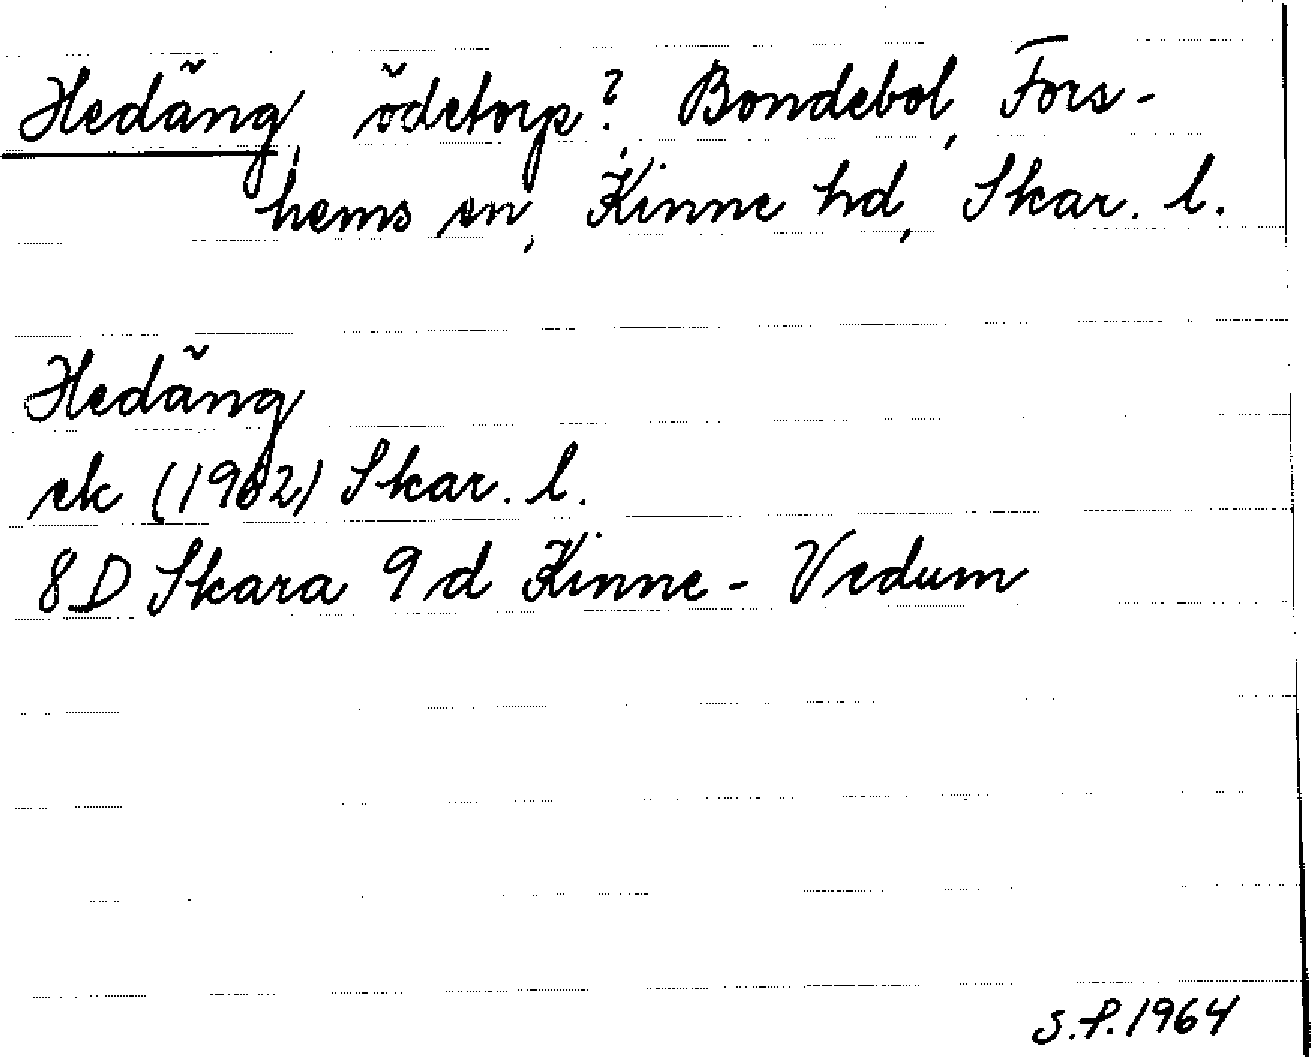 Hedäng, ödetorp?, Bondebol, Fors-
hems sn, Kinne hd, Skar. l.
Hedäng
ek (1962) Skar. l.
8D Skara 9d Kinne-Vedum
S.P. 1964